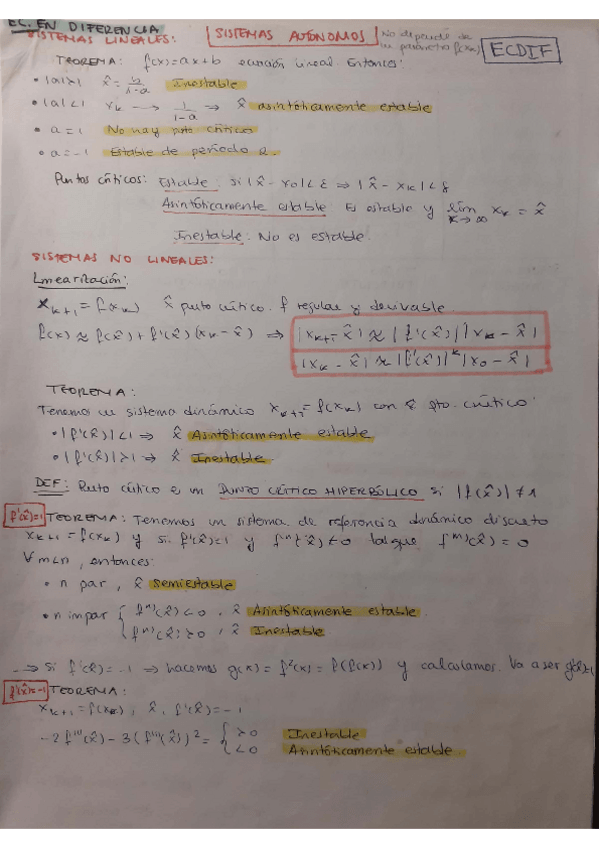 EC. EN DIFERENCIA
SISTEMAS LINEALES: SISTEMAS AUTÓNOMOS No depende de un parámetro f(xk) ECDIF
TEOREMA: f(x)=ax+b ecuación lineal. Entonces:
• |a|>1 x̂ = b/1-a Inestable
• |a|<1 xk → 1/1-a → x̂ asintóticamente estable
• a=1 No hay pto crítico
• a=-1 Estable de periodo 2.
Puntos críticos: Estable: si |x̂-x0|<ε ⇒ |x̂-xk|<δ
Asintóticamente estable Es estable y lím k→∞ xk = x̂
Inestable: No es estable.
SISTEMAS NO LINEALES:
Linearización:
xk+1 = f(xk) x̂ punto crítico. f regular y derivable.
f(x) ≈ f(x̂) + f'(x̂)(xk-x̂) ⇒ |xk+1-x̂| ≈ |f'(x̂)||xk-x̂|
|xk-x̂| ≈ |f'(x̂)|^k |x0-x̂|
TEOREMA:
Tenemos un sistema dinámico xk+1=f(xk) con x̂ pto. crítico:
• |f'(x̂)|<1 ⇒ x̂ Asintóticamente estable
• |f'(x̂)|>1 ⇒ x̂ Inestable.
DEF: Punto crítico es un PUNTO CRÍTICO HIPERBÓLICO si |f(x̂)| ≠ 1
f'(x̂)=1 TEOREMA: Tenemos un sistema de referencia dinámico discreto
xk+1=f(xk) y si f'(x̂)=1 y f^n(x̂)≠0 tal que f^m)(x̂)=0
∀m<n, entonces:
• n par, x̂ Semiestable
• n impar { f^n)(x̂)<0, x̂ Asintóticamente estable.
f^n)(x̂)>0, x̂ Inestable
→ Si f'(x̂)=-1 ⇒ hacemos g(x)=f²(x)=f(f(x)) y calculamos. Va a ser
f'(x̂)=-1 TEOREMA:
xk+1=f(xk), x̂, f'(x̂)=-1
-2f'''(x̂)-3(f''(x̂))² = { >0 Inestable
<0 Asintóticamente estable